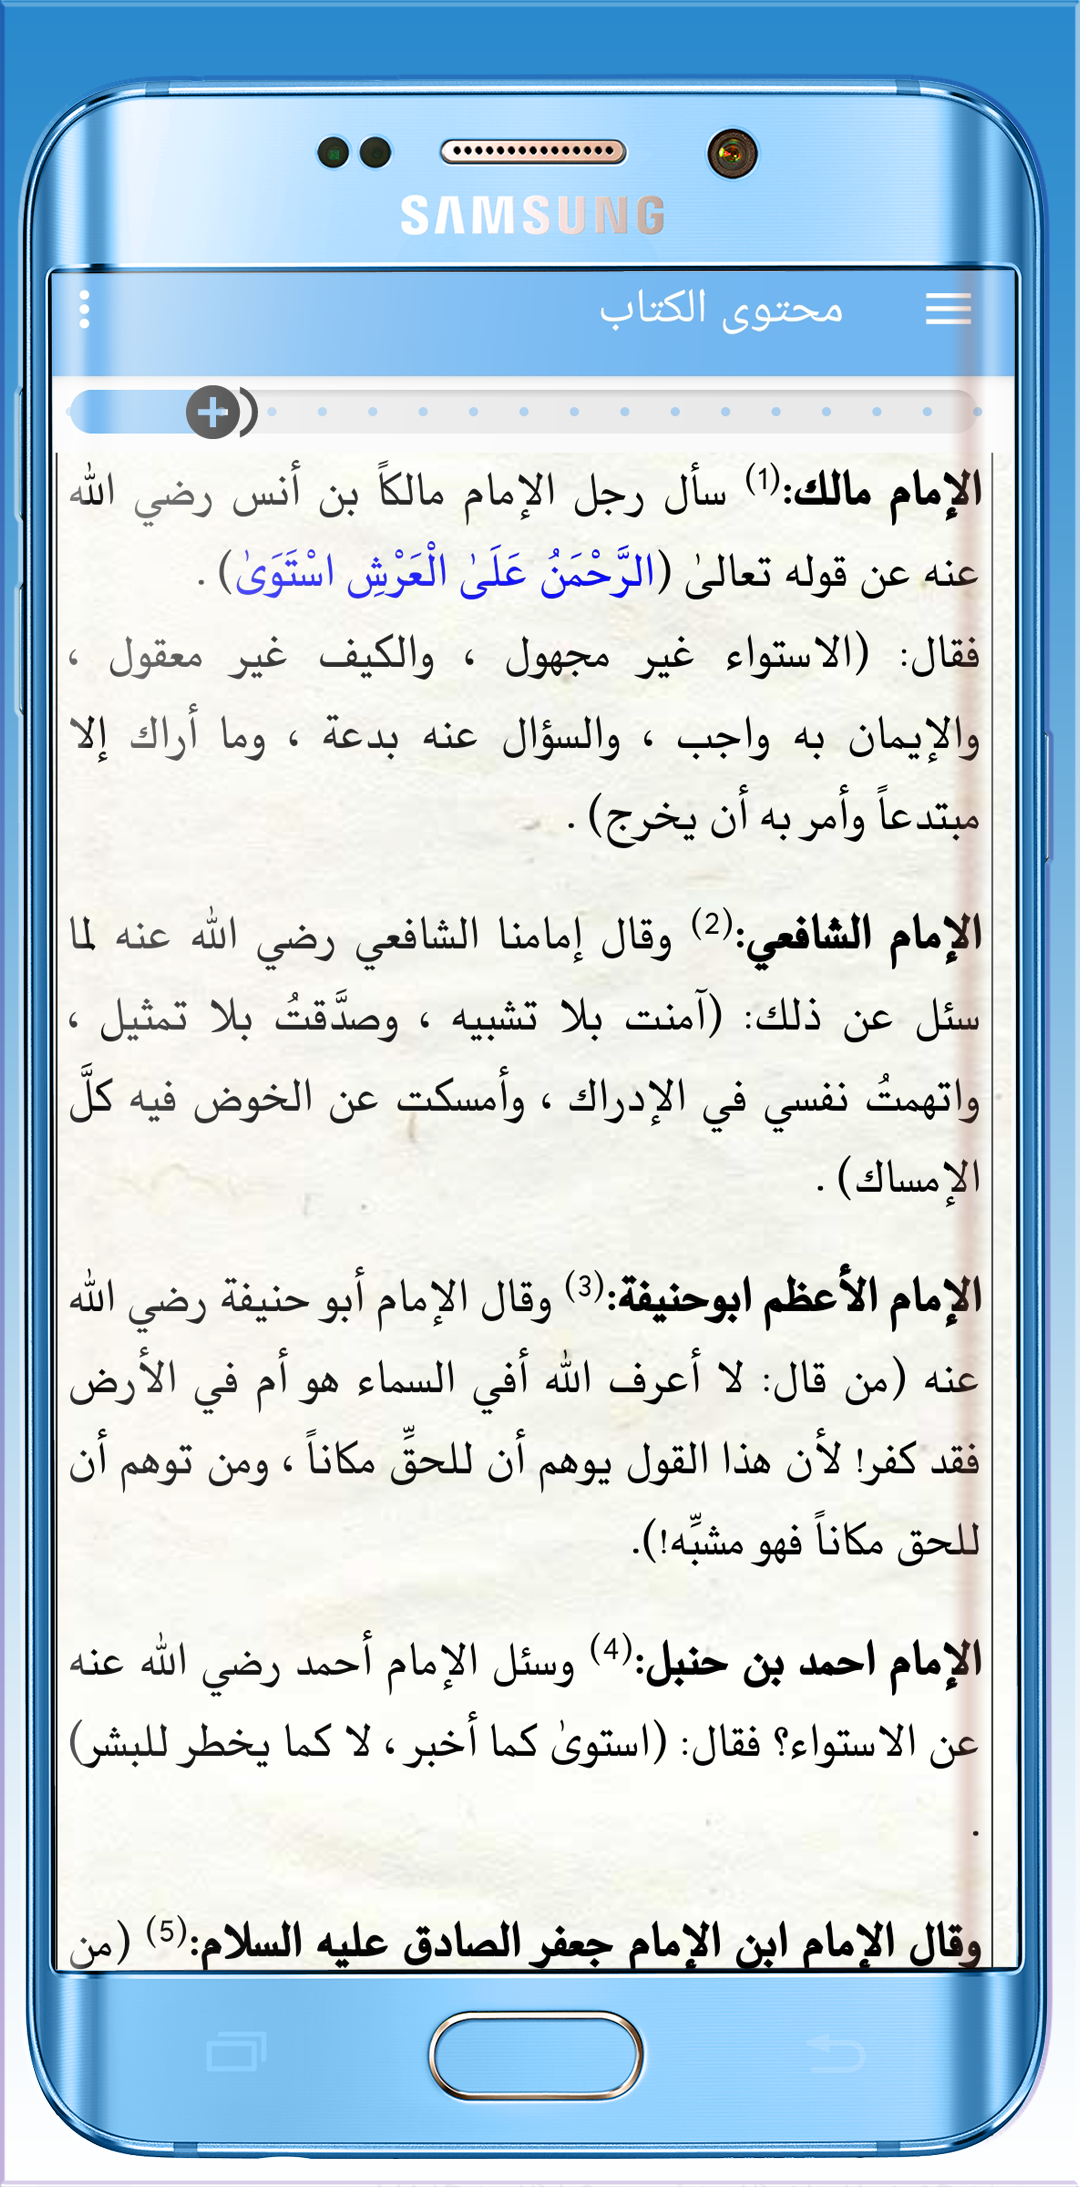 SAMSUNG
محتوى الكتاب
الإمام مالك:(1) سأل رجل الإمام مالكاً بن أنس رضي الله
عنه عن قوله تعالىٰ (الرَّحْمَنُ عَلَىٰ الْعَرْشِ اسْتَوَىٰ) .
فقال: (الاستواء غير مجهول ، والكيف غير معقول ،
والإيمان به واجب ، والسؤال عنه بدعة ، وما أراك إلا
مبتدعاً وأمر به أن يخرج) .
الإمام الشافعي:(2) وقال إمامنا الشافعي رضي الله عنه لما
سئل عن ذلك: (آمنت بلا تشبيه ، وصدَّقتُ بلا تمثيل ،
واتهمتُ نفسي في الإدراك ، وأمسكت عن الخوض فيه كلَّ
الإمساك) .
الإمام الأعظم ابوحنيفة:(3) وقال الإمام أبو حنيفة رضي الله
عنه (من قال: لا أعرف الله أفي السماء هو أم في الأرض
فقد كفر! لأن هذا القول يوهم أن للحقِّ مكاناً ، ومن توهم أن
للحق مكاناً فهو مشبِّه!).
الإمام احمد بن حنبل:(4) وسئل الإمام أحمد رضي الله عنه
عن الاستواء؟ فقال: (استوىٰ كما أخبر ، لا كما يخطر للبشر)
.
وقال الإمام ابن الإمام جعفر الصادق عليه السلام:(5) (من